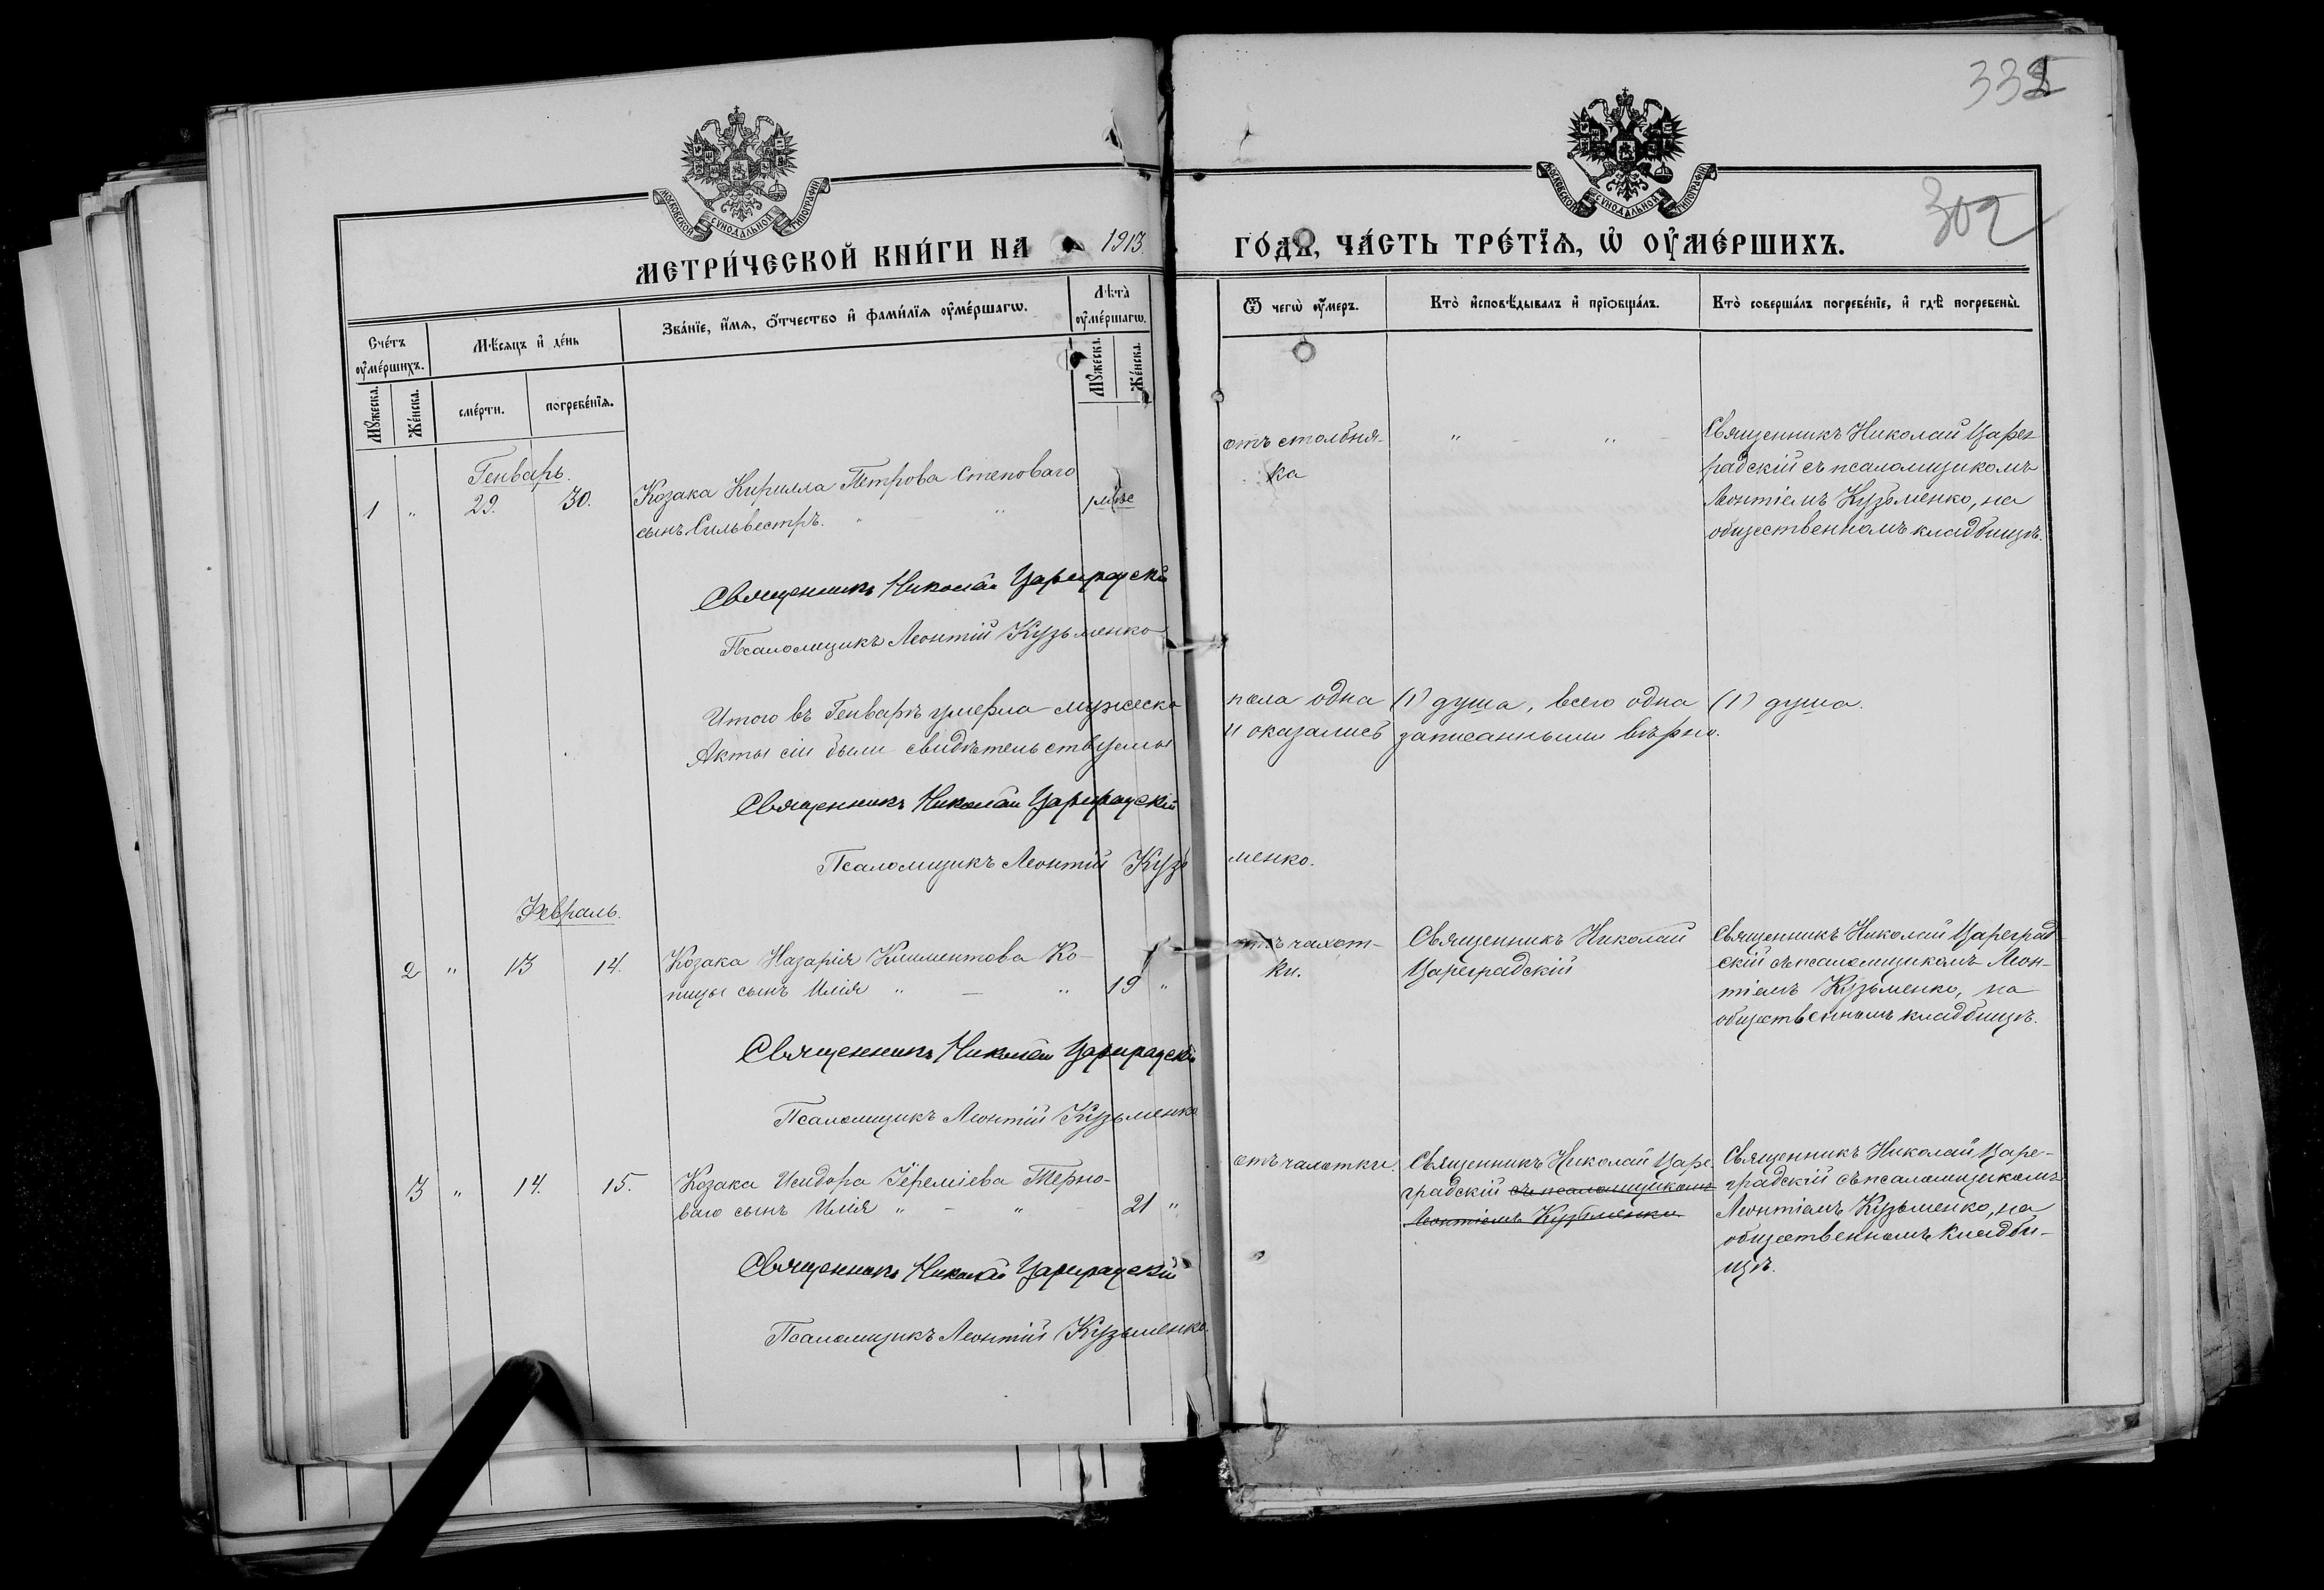 335
302
МОСКОВСКОЙ СУНОДАЛЬНОЙ ТИПОГРАФІИ
МОСКОВСКОЙ СУНОДАЛЬНОЙ ТИПОГРАФІИ
МЕТРИ́ЧЕСКОЙ КНИ́ГИ НА 1913
ГО́ДЪ, ЧА́СТЬ ТРЕ́ТЇѦ, Ѡ҆ ОУ҆МЕ́РШИХЪ.
Сче́тъ оу҆ме́ршихъ.
Мꙋ́жеска.
Же́нска.
Мѣ́сяцъ и҆ де́нь
сме́рти.
погребе́нїѧ.
Зва́нїе, и҆́мѧ, ѻ҆́тчество и҆ фами́лїѧ оу҆ме́ршагѡ.
Лѣ̀та̀ оу҆ме́ршагѡ.
Мꙋ́жеска.
Же́нска.
Ѿ чегѡ̀ оу҆́меръ.
Кто̀ и҆сповѣ́дывалъ и҆ прїѡбща́лъ.
Кто̀ соверша́лъ погребе́нїе, и҆ гдѣ̀ погребены̀.
Генварь.
1 " 29. 30. Козака Кирилла Петрова Степоваго
сынъ Сильвестръ. " "
отъ столбня-
ка
" - " -
Священникъ Николай Царег-
радскій съ псаломщикомъ
Леонтіемъ Кузьменко, на
общественномъ кладбищѣ.
Священникъ Николай Цареградскій
Псаломщикъ Леонтій Кузьменко
Итого въ Генварѣ умерла мужеска пола одна (1) душа, всего одна (1) душа.
Акты сіи были свидѣтельствуемы и оказались записанными вѣрно.
Священникъ Николай Цареградскій
Псаломщикъ Леонтій Кузьменко.
Февраль.
2 " 13 14. Козака Назарія Климентова Ко-
пицы сынъ Илія " — " 19 "
отъ чахот-
ки.
Священникъ Николай
Цареградскій
Священникъ Николай Цареград-
скій съ псаломщикомъ Леон-
тіемъ Кузьменко, на
общественномъ кладбищѣ.
Священникъ Николай Цареградскій
Псаломщикъ Леонтій Кузьменко
3 " 14. 15. Козака Исидора Іереміева Терно-
ваго сынъ Илія " - " - 21 "
отъ чахотки.
Священникъ Николай Царе-
градскій съ псаломщикомъ
Леонтіемъ Кузьменко
Священникъ Николай Царе-
градскій съ псаломщикомъ
Леонтіемъ Кузьменко, на
общественномъ кладби-
щѣ.
Священникъ Николай Цареградскій
Псаломщикъ Леонтій Кузьменко.